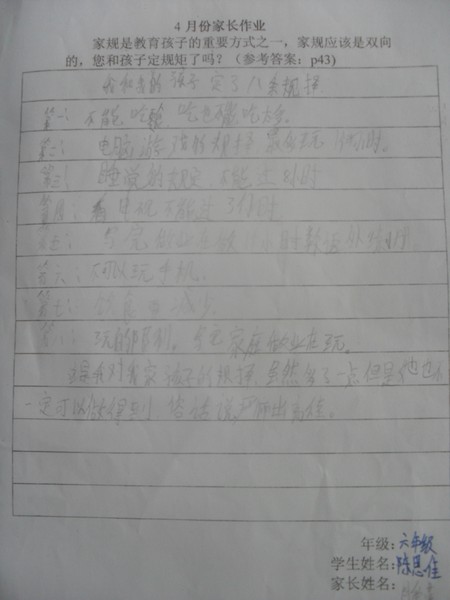 4月份家长作业
家规是教育孩子的重要方式之一，家规应该是双向
的，您和孩子定规矩了吗？（参考答案：p43）
我和我的孩子定了八条规择
第一：不能吃
第二：电脑游戏的规 最多玩1小时。
第三：睡觉的规定，不能过9时
第四：看电视不能过3小时
第五：写完作业
第六：不可以玩手机。
第七：饮食
第八：玩的 写完家庭作业在玩。
这是我对我家孩子的规择，虽然多了一点但是他也不
一定可以做得到，俗话说，严师出高徒。
年级：六年级
学生姓名：陈思佳
家长姓名：